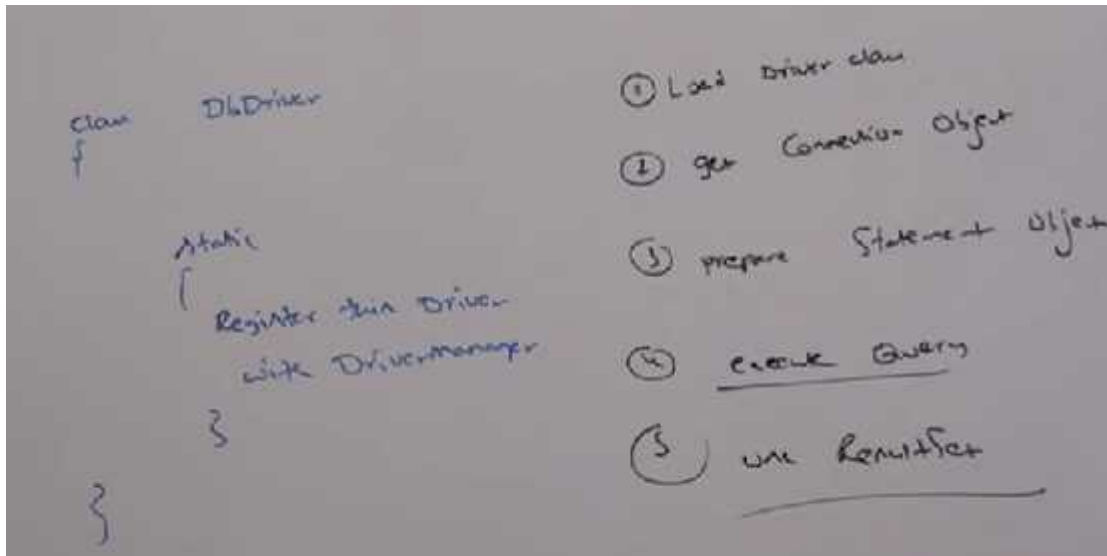 class DbDriver
{
static
{
Register this Driver
with DriverManager
}
}
① Load Driver class
② get Connection Object
③ prepare Statement Object
④ execute Query
⑤ use ResultSet